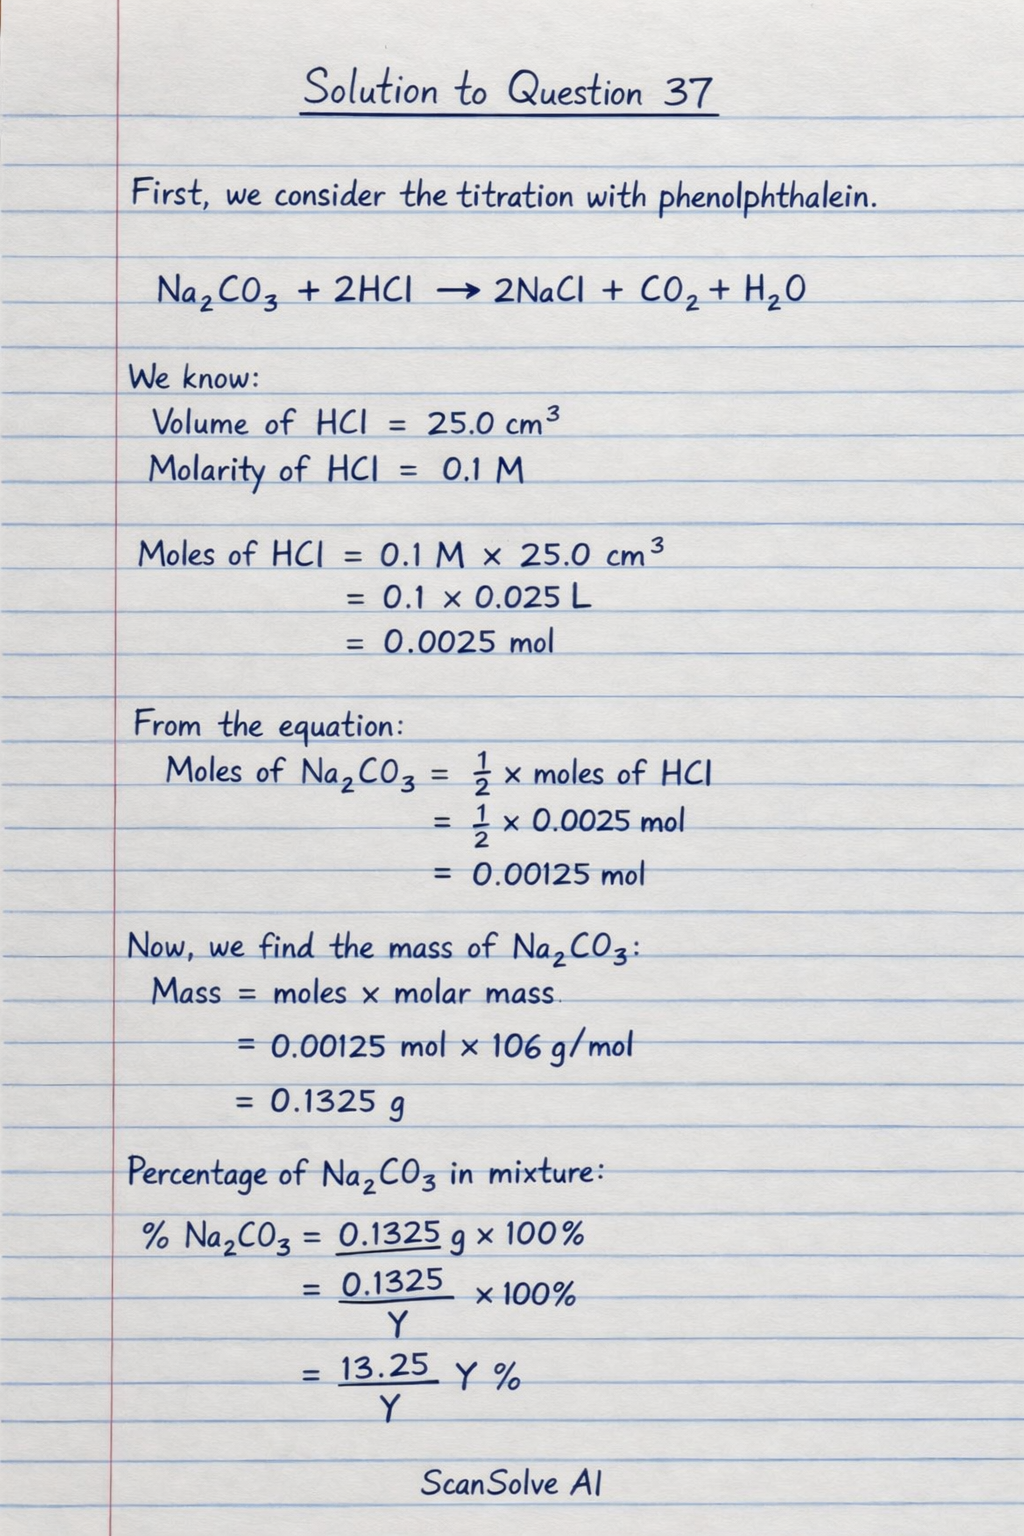 Solution to Question 37
First, we consider the titration with phenolphthalein.
Na₂CO₃ + 2HCl → 2NaCl + CO₂ + H₂O
We know:
Volume of HCl = 25.0 cm³
Molarity of HCl = 0.1 M
Moles of HCl = 0.1 M × 25.0 cm³
= 0.1 × 0.025 L
= 0.0025 mol
From the equation:
Moles of Na₂CO₃ = 1/2 × moles of HCl
= 1/2 × 0.0025 mol
= 0.00125 mol
Now, we find the mass of Na₂CO₃:
Mass = moles × molar mass.
= 0.00125 mol × 106 g/mol
= 0.1325 g
Percentage of Na₂CO₃ in mixture:
% Na₂CO₃ = 0.1325 g × 100%
= 0.1325/Y × 100%
= 13.25/Y Y %
ScanSolve AI